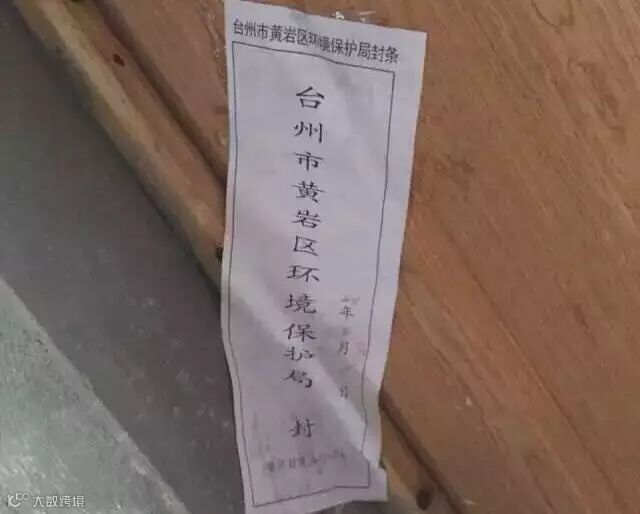 台州市黄岩区环境保护局封条
台州市黄岩区环境保护局 封
年 月 日
大数跨境